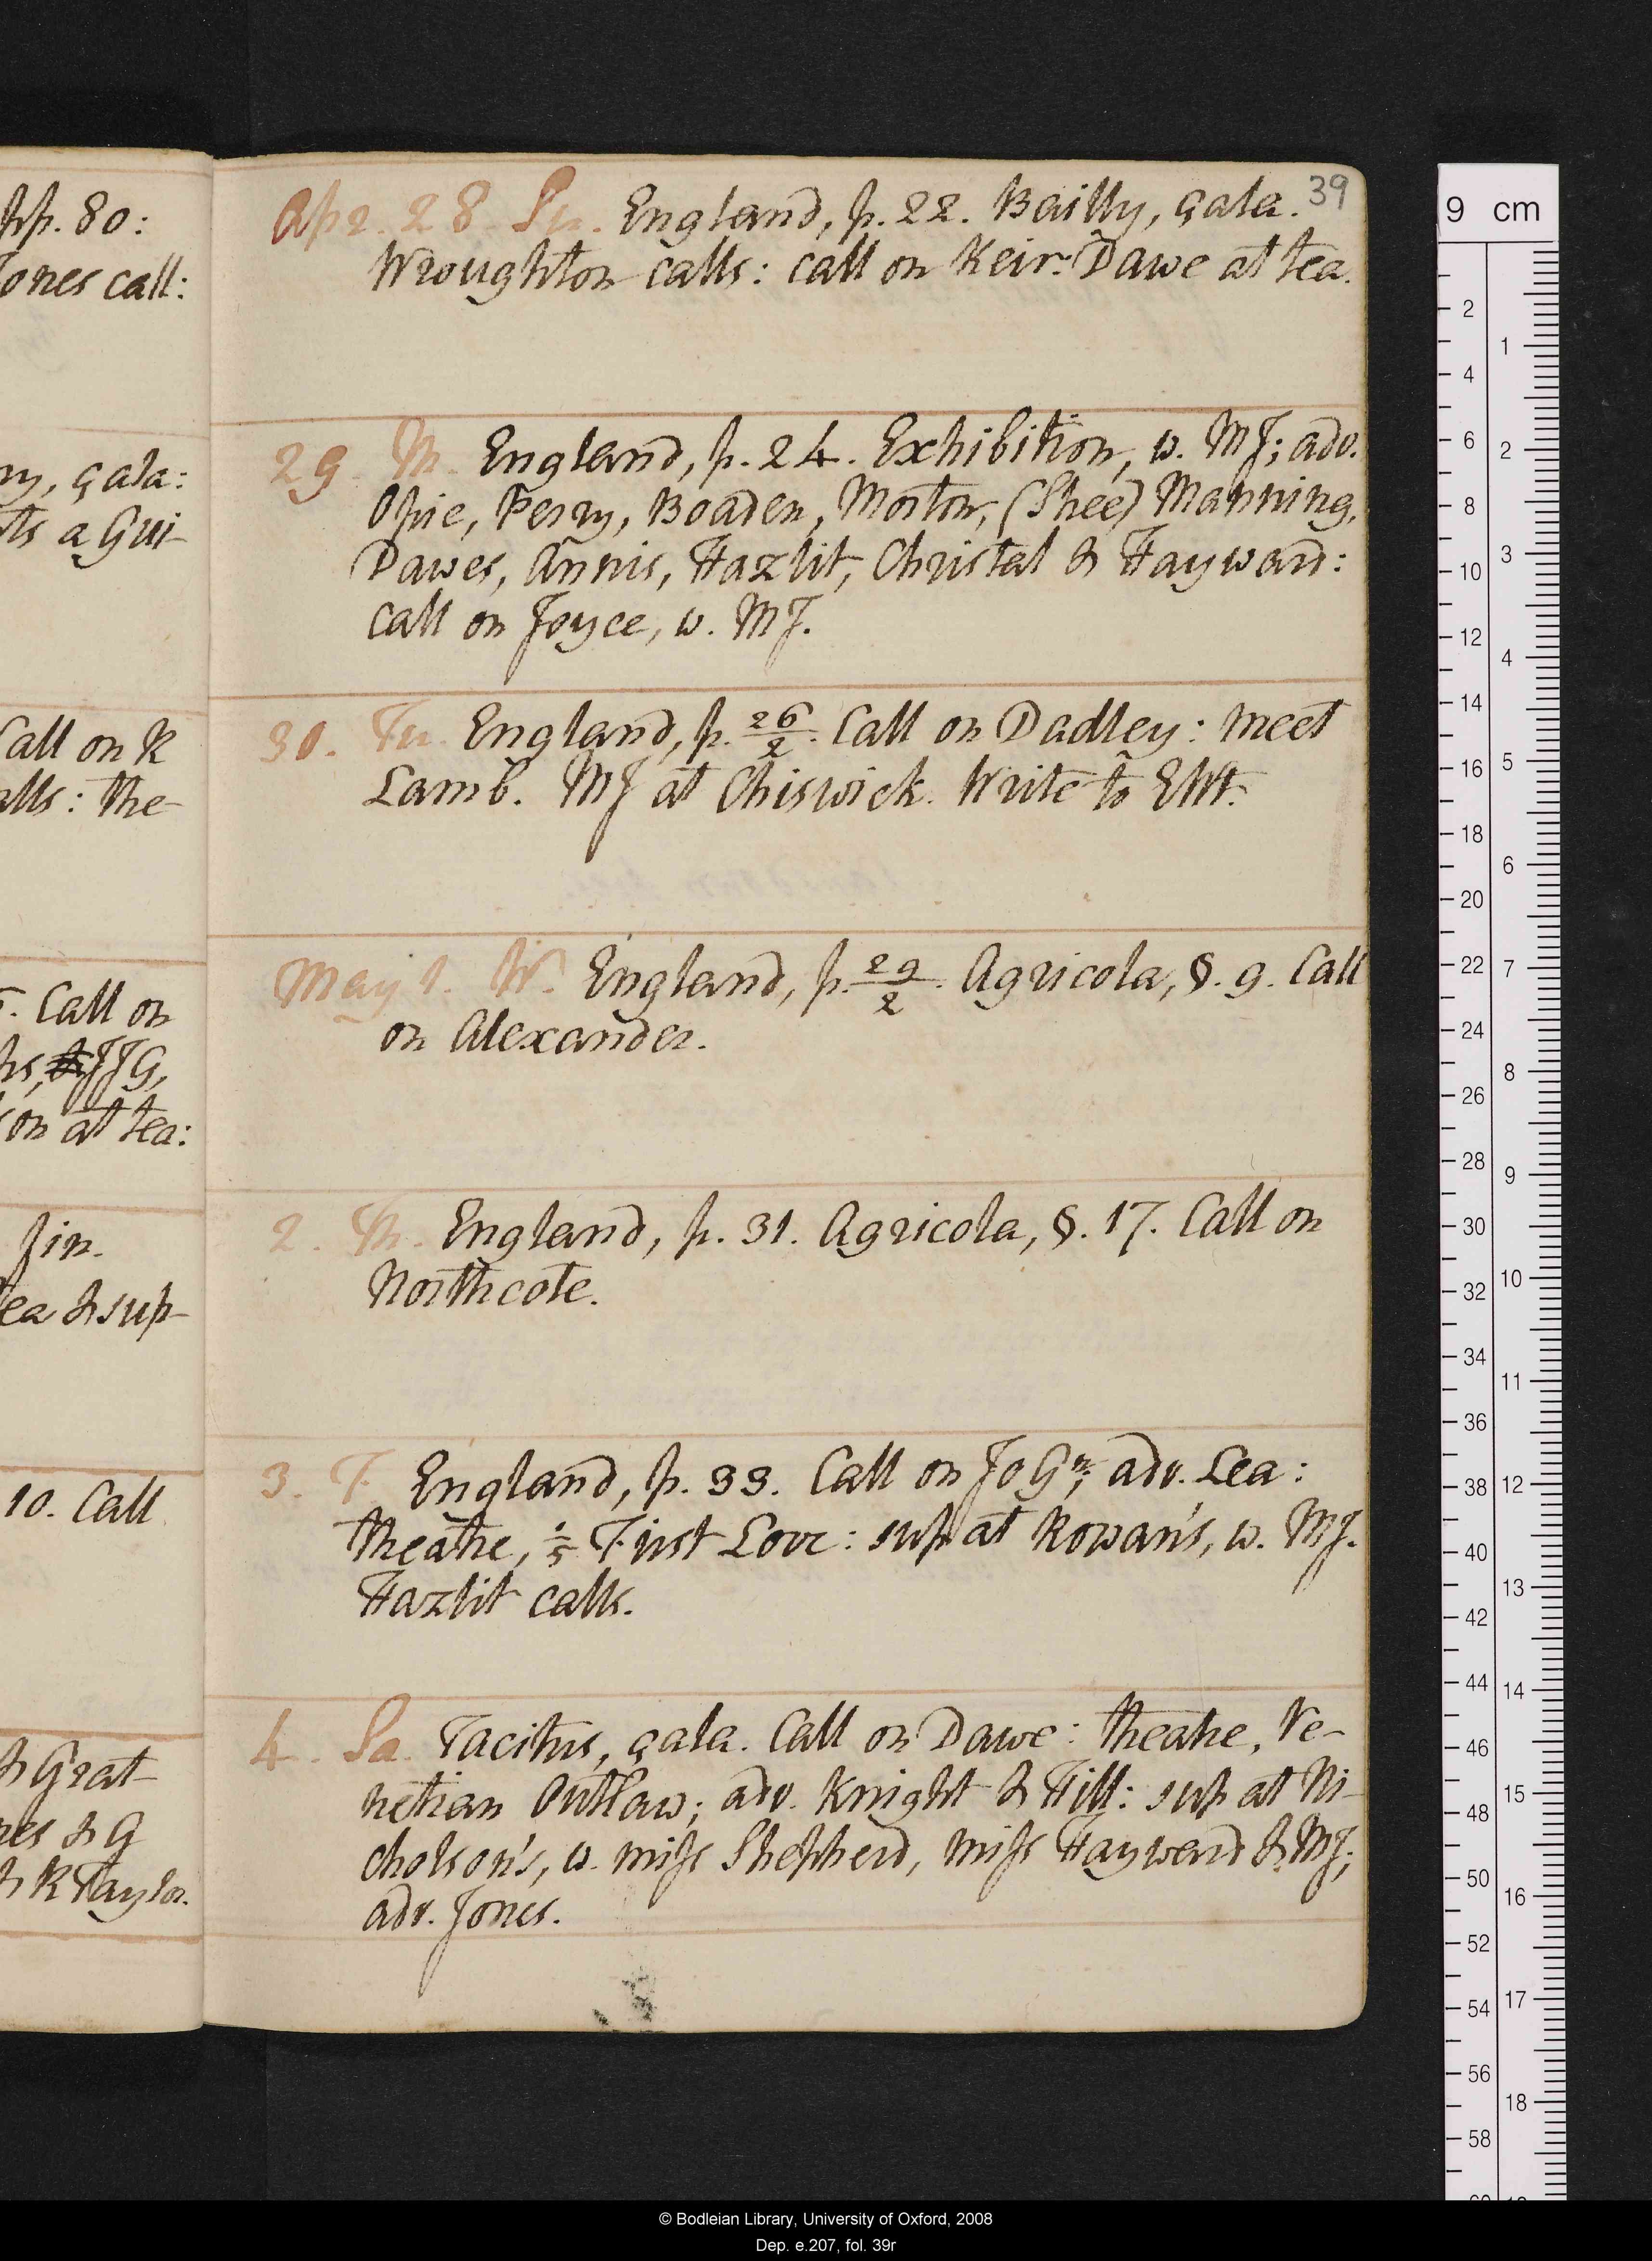 pp. 80:
ones call:
ry, çala:
ts a Gui-
Call on K
alls: the-
. Call on
hs, JJG,
son at tea:
fin.
ea & sup-
10. Call
& Grat-
nes & G
& K Taylor.
39
Apr. 28. Su. England, p. 22. Bailly, çala.
Wroughton calls: call on Keir: Dawe at tea.
29. M. England, p. 24. Exhibition, w. MJ; adv.
Opie, Perry, Boaden, Morton, (Shee) Manning,
Dawes, Annis, Hazlit, Christal & Hayward:
call on Joyce, w. MJ.
30. Tu. England, p. 26/2. Call on Dadley: meet
Lamb. MJ at Chiswick. Write to EWt.
May 1. W. England, p. 29/2. Agricola, §. 9. Call
on Alexander.
2. Th. England, p. 31. Agricola, §. 17. Call on
Northcote.
3. F. England, p. 33. Call on Jo Gn; adv. Lea:
theatre, 1/5 First Love: sup at Rowan's, w. MJ.
Hazlit calls.
4. Sa. Tacitus, çala. Call on Dawe: theatre, Ve-
netian Outlaw; adv. Knight & Hill: sup at Ni-
cholson's, w. miss Shepherd, miss Hayward & MJ;
adv. Jones.
9 cm
2
4
6
8
10
12
14
16
18
20
22
24
26
28
30
32
34
36
38
40
42
44
46
48
50
52
54
56
58
1
2
3
4
5
6
7
8
9
10
11
12
13
14
15
16
17
18
© Bodleian Library, University of Oxford, 2008
Dep. e.207, fol. 39r